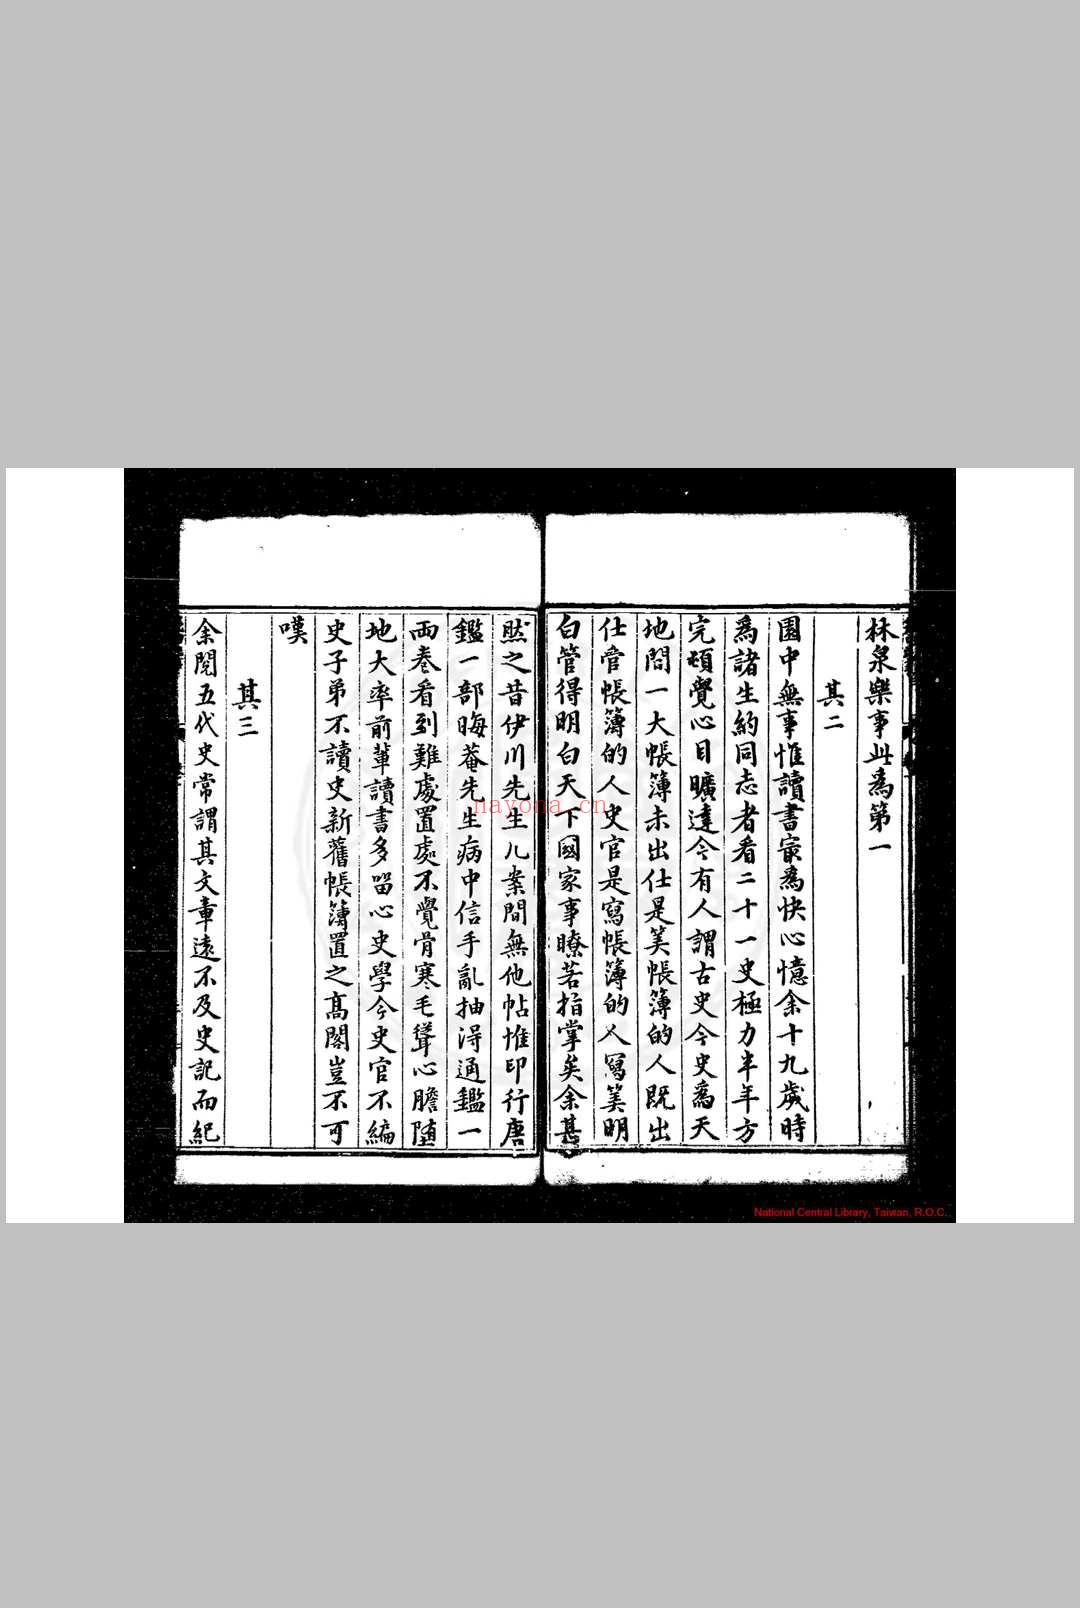 林泉樂事此為第一
其二
園中無事惟讀書宲為快心憶余十九歲時
為諸生約同志者看二十一史極力半年方
完頓覺心目曠達今有人謂古史今史為天
地間一大帳簿未出仕是筭帳簿的人既出
仕管帳簿的人史官是寫帳簿的人寫筭明
白管得明白天下國家事瞭若指掌矣余甚
然之昔伊川先生几案間無他帖惟印行唐
鑑一部晦菴先生病中信手亂抽得通鑑一
兩卷看到難處置處不覺骨寒毛聳心膽墮
地大率前輩讀書多畱心史學今史官不編
史子弟不讀史新舊帳簿置之高閣豈不可
嘆
其三
余閱五代史常謂其文章遠不及史記而紀
nayona.cn
National Central Library, Taiwan, R.O.C.